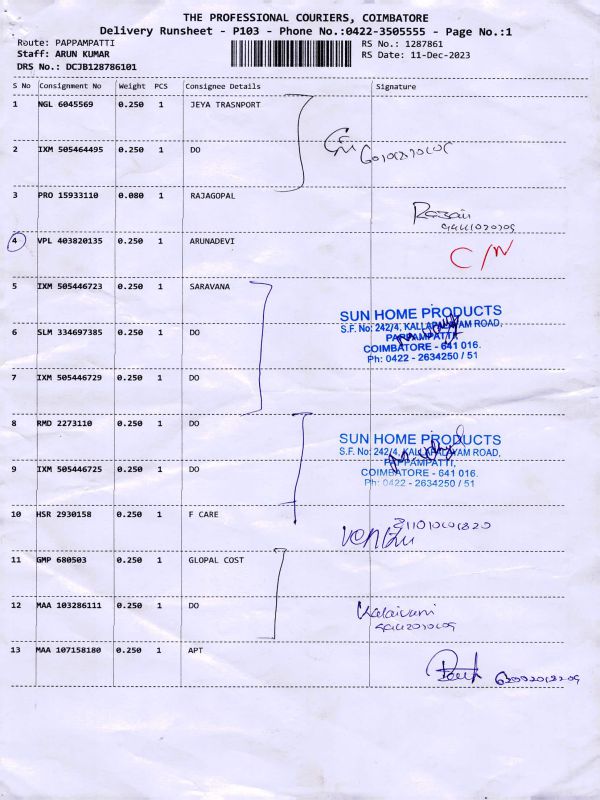 THE PROFESSIONAL COURIERS, COIMBATORE
Delivery Runsheet - P103 - Phone No.:0422-3505555 - Page No.:1
Route: PAPPAMPATTI RS No.: 1287861
Staff: ARUN KUMAR RS Date: 11-Dec-2023
DRS No.: DCJB128786101
S No Consignment No Weight PCS Consignee Details Signature
1 NGL 6045569 0.250 1 JEYA TRASNPORT
2 IXM 505464495 0.250 1 DO
3 PRO 15933110 0.080 1 RAJAGOPAL
4 VPL 403820135 0.250 1 ARUNADEVI C/N
5 IXM 505446723 0.250 1 SARAVANA
SUN HOME PRODUCTS
S.F. No: 242/4, KALLAPALAYAM ROAD,
6 SLM 334697385 0.250 1 DO PAPPAMPATTI,
COIMBATORE - 641 016.
Ph: 0422 - 2634250 / 51
7 IXM 505446729 0.250 1 DO
8 RMD 2273110 0.250 1 DO
SUN HOME PRODUCTS
S.F. No: 242/4, KALLAPALAYAM ROAD,
PAPPAMPATTI,
9 IXM 505446725 0.250 1 DO COIMBATORE - 641 016.
Ph: 0422 - 2634250 / 51
10 HSR 2930158 0.250 1 F CARE
11 GMP 680503 0.250 1 GLOPAL COST
12 MAA 103286111 0.250 1 DO Kalaivani
13 MAA 107158180 0.250 1 APT